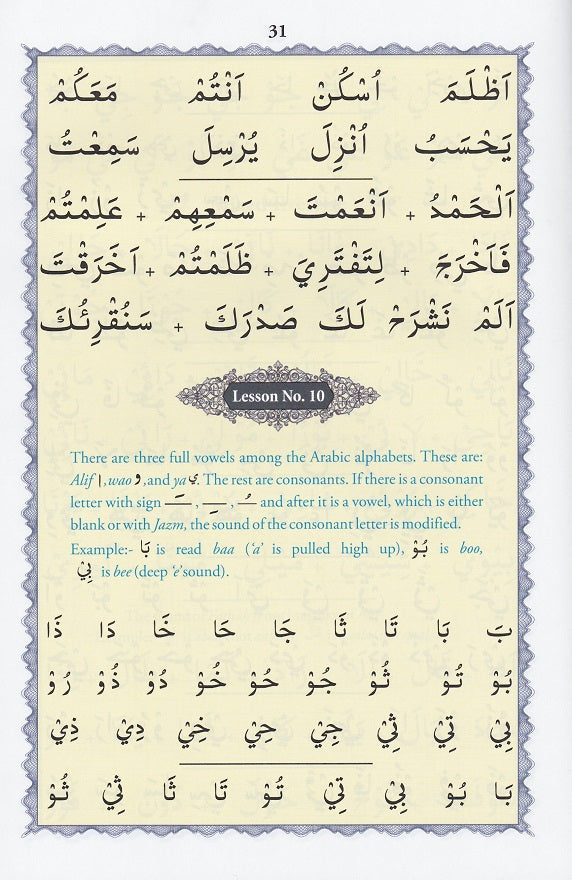 31
اَظْلَمَ اُسْكُنْ اَنْتُمْ مَعَكُمْ
يَحْسَبُ اُنْزِلَ يُرْسِلَ سَمِعْتُ
اَلْحَمْدُ + اَنْعَمْتَ + سَمْعِهِمْ + عَلِمْتُمْ
فَاَخْرَجَ + لِتَفْتَرِيَ + ظَلَمْتُمْ + اَخَرَقْتَ
اَلَمْ نَشْرَحْ لَكَ صَدْرَكَ + سَنُقْرِئُكَ
Lesson No. 10
There are three full vowels among the Arabic alphabets. These are:
Alif ا, wao و, and ya ي. The rest are consonants. If there is a consonant
letter with sign ـَ , ـِ , ـُ and after it is a vowel, which is either
blank or with Jazm, the sound of the consonant letter is modified.
Example:- بَا is read baa ('a' is pulled high up), بُوْ is boo,
بِيْ is bee (deep 'e' sound).
بَ بَا تَا ثَا جَا حَا خَا دَا ذَا
بُوْ تُوْ ثُوْ جُوْ حُوْ خُوْ دُوْ ذُوْ رُوْ
بِيْ تِيْ ثِيْ جِيْ حِيْ خِيْ دِيْ ذِيْ
بَا بُوْ بِيْ تِيْ تُوْ تَا ثَا ثِيْ ثُوْ